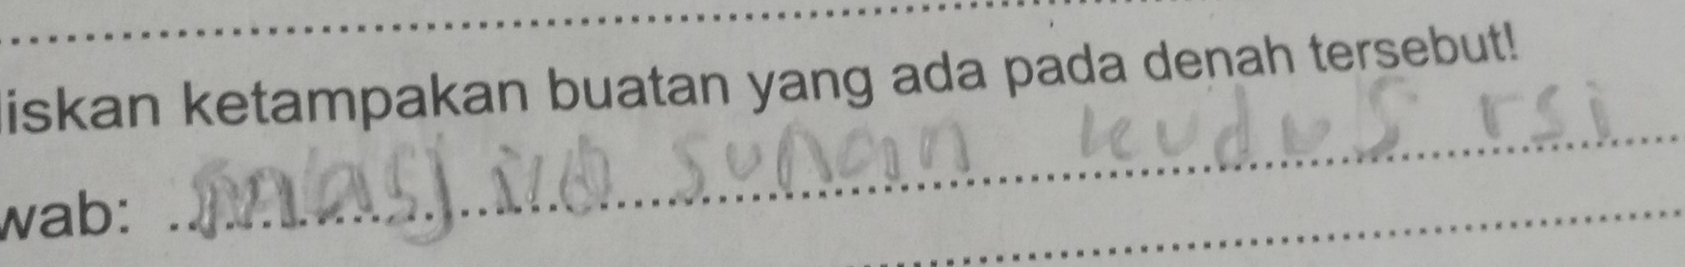 liskan ketampakan buatan yang ada pada denah tersebut!
wab: masjid sunan kudus rsi